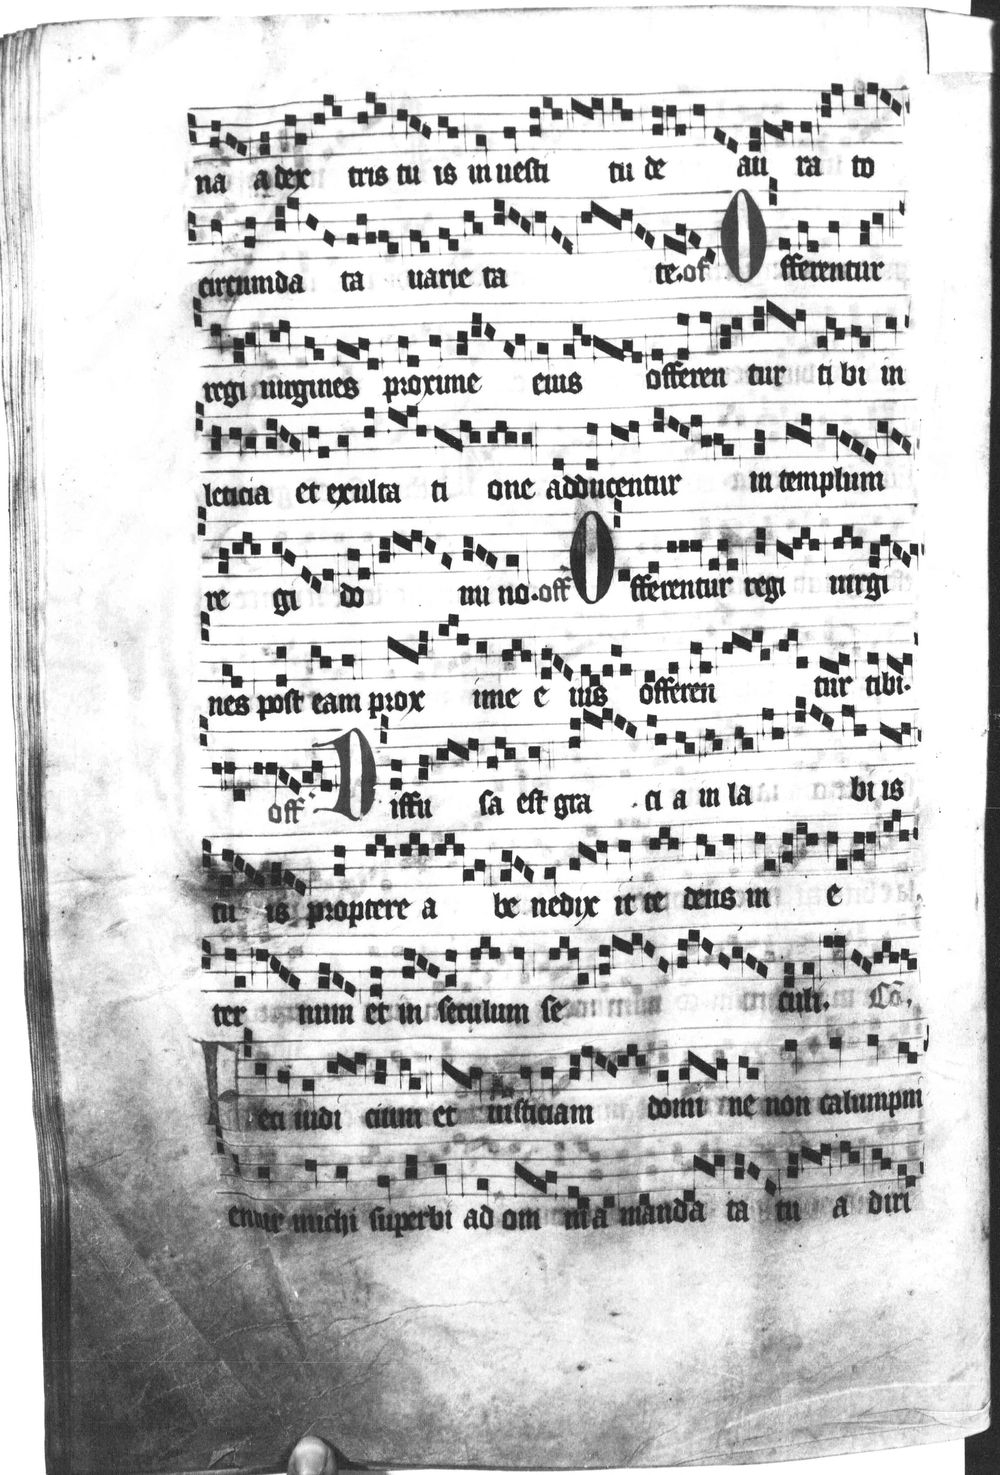 na a dex tris tu is in uesti tu de au ra to
circumda ta uarie ta te. of Offerentur
regi uirgines proxime eius offeren tur ti bi in
leticia et exulta ti one adducentur in templum
re gi do mi no. off Offerentur regi uirgi
nes post eam prox ime e ius offeren tur tibi.
off Diffu sa est gra ci a in la bi is
tu is proptere a be nedix it te deus in e
ter num et in seculum se culi. Co.
Feci iudi cium et iusticiam domi ne non calumpni
entur michi superbi ad om nia manda ta tu a diri